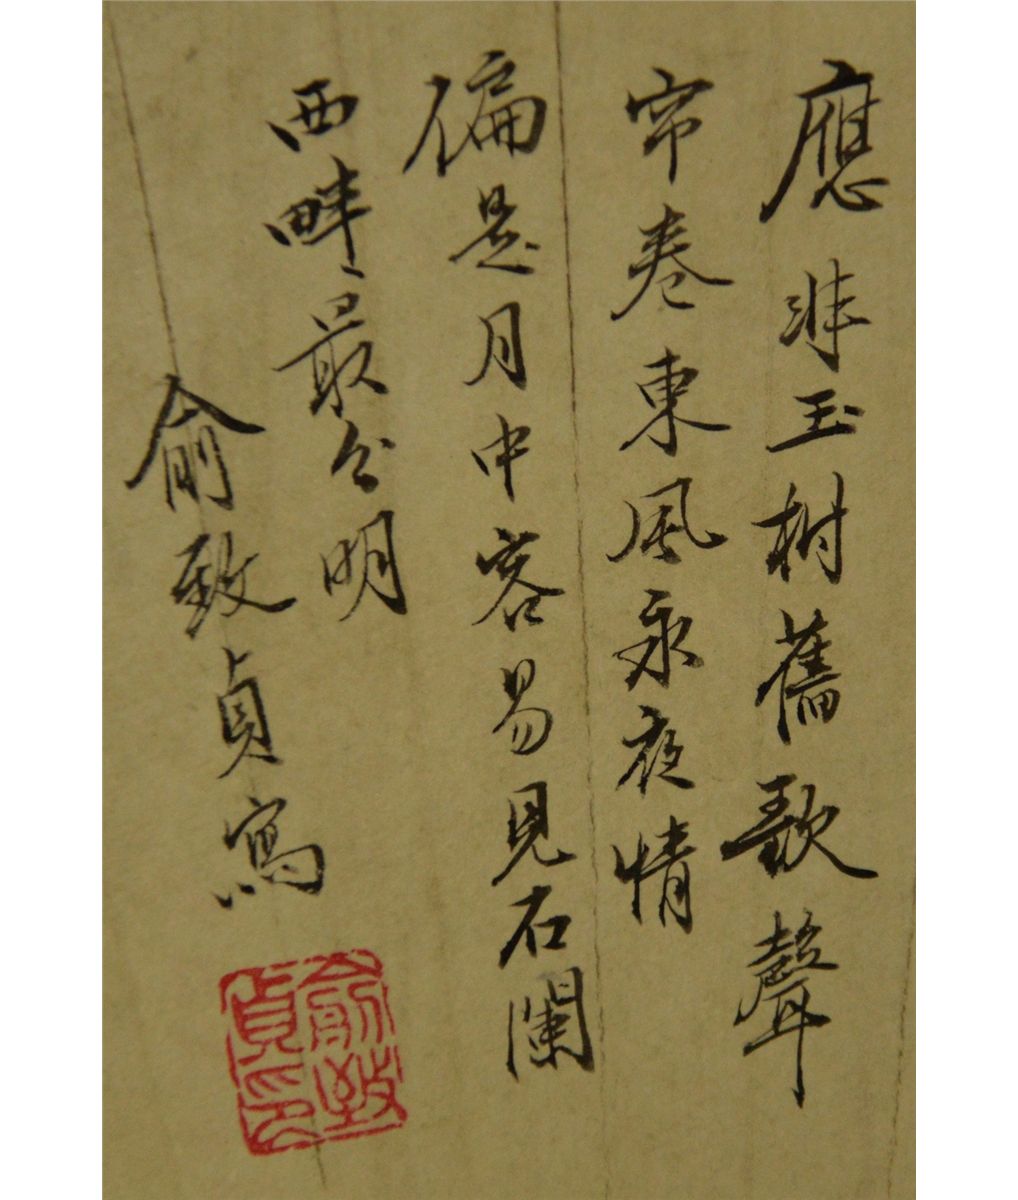 應非玉樹舊歌聲
帘卷東風永夜情
偏是月中容易見石闌
西畔最分明
俞致貞寫
俞致
貞印